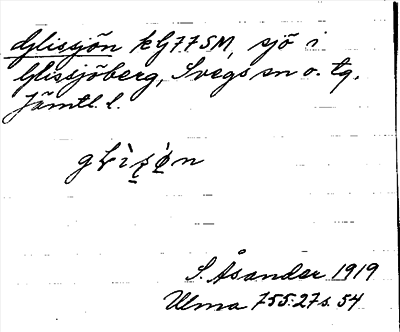 Glissjön kG77SM, sjö i
Glissjöberg, Svegs sn o. tg,
Jämtl. l.
S. Åsander 1919
Ulma 755:27 s. 54